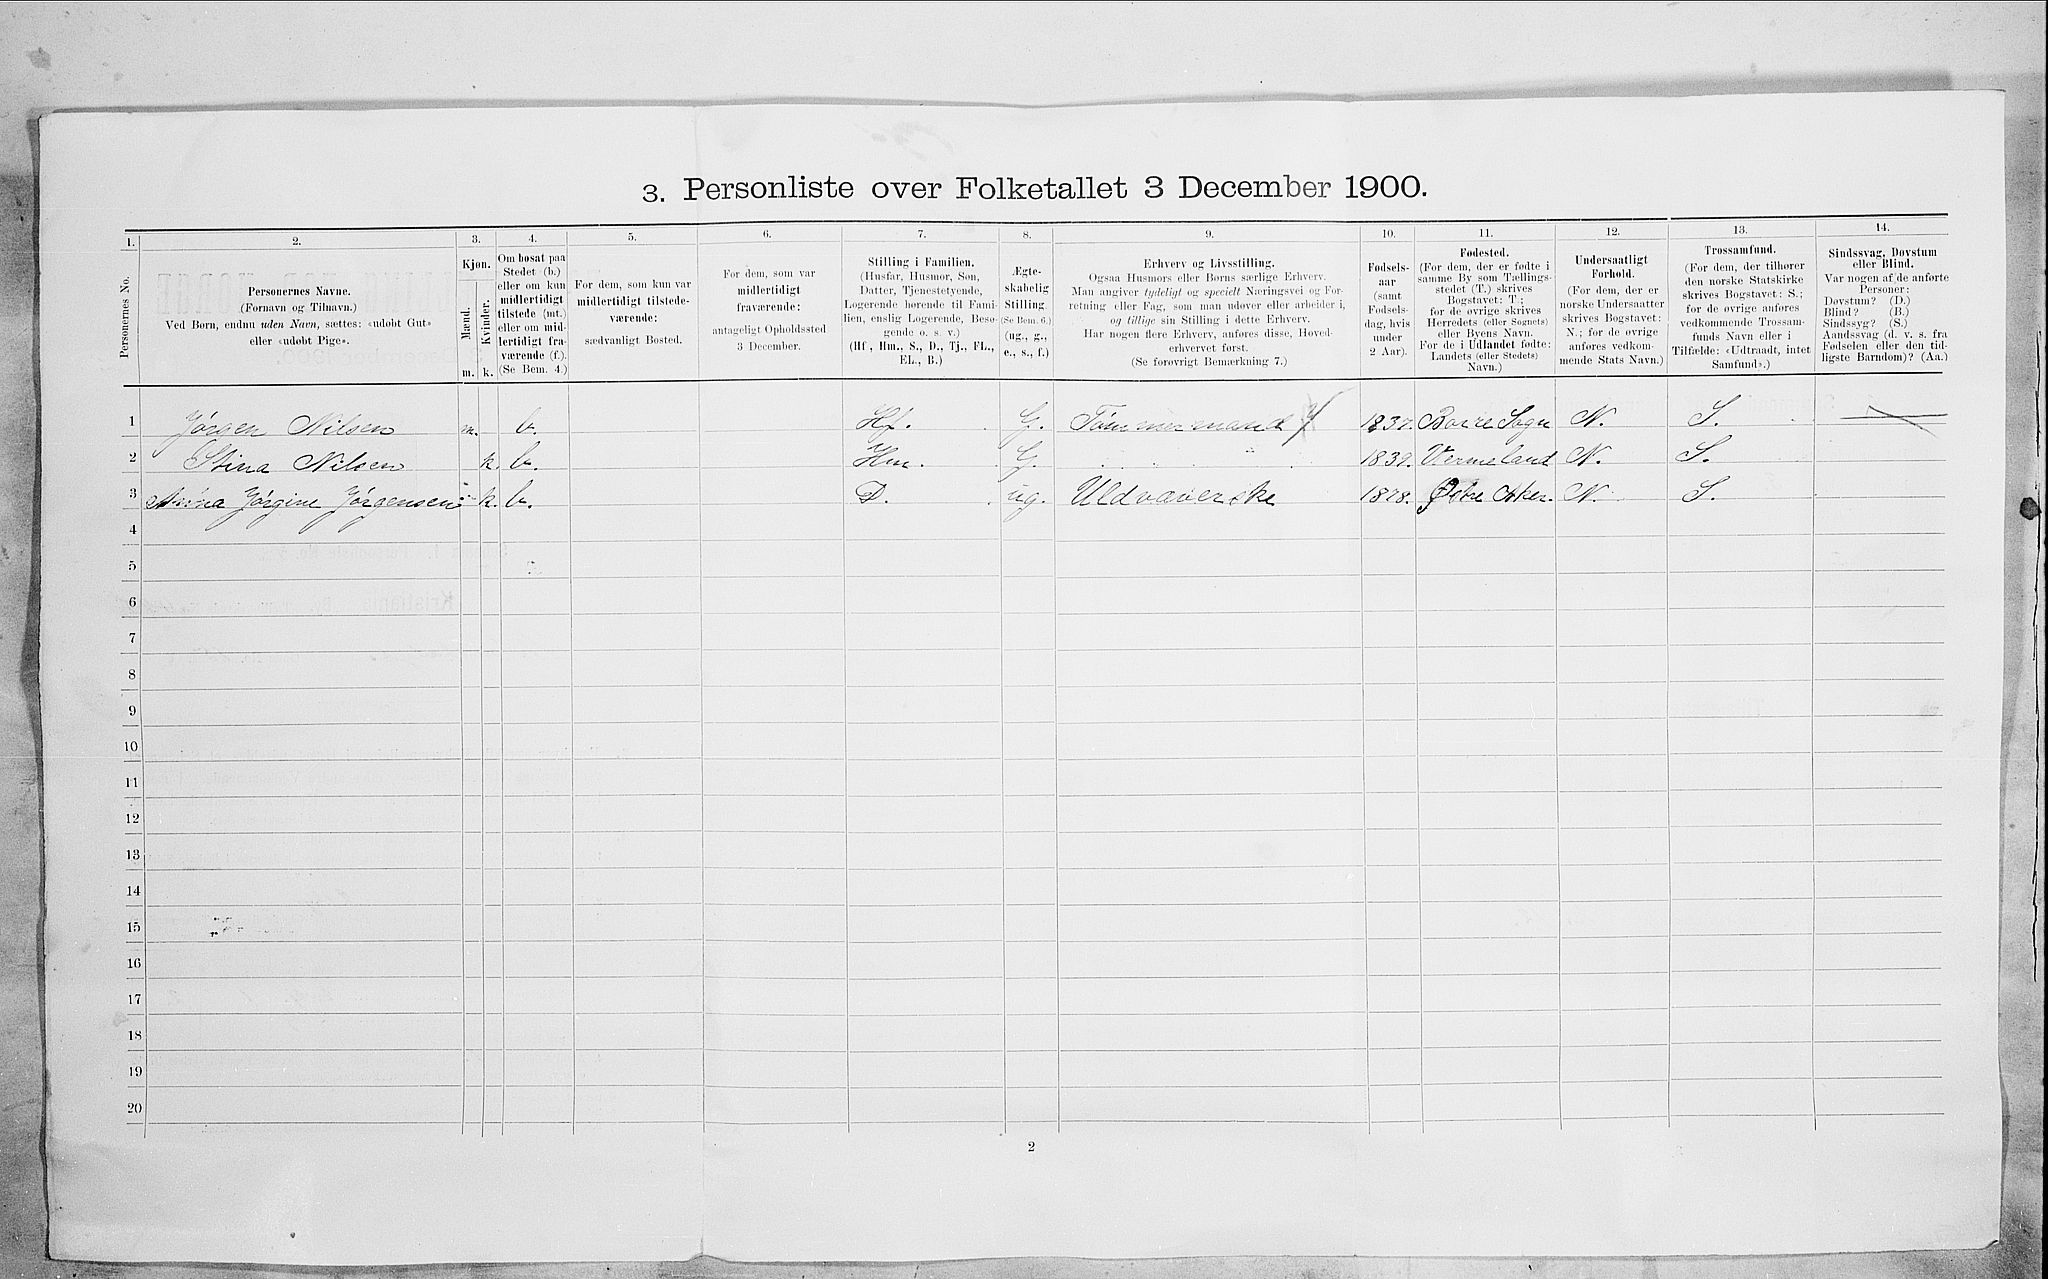 3. Personliste over Folketallet 3 December 1900.
1. 2. 3. 4. 5. 6. 7. 8. 9. 10. 11. 12. 13. 14.
Personernes No.
Personernes Navne.
(Fornavn og Tilnavn.)
Ved Børn, endnu uden Navn, sættes: «udøbt Gut»
eller «udøbt Pige».
Kjøn.
Mænd.
Kvinder.
m. k.
Om bosat paa
Stedet (b.)
eller om kun
midlertidigt
tilstede (mt.)
eller om mid-
lertidigt fra-
værende (f.).
(Se Bem. 4.)
For dem, som kun var
midlertidigt tilstede-
værende:
sædvanligt Bosted.
For dem, som var
midlertidigt
fraværende:
antageligt Opholdssted
3 December.
Stilling i Familien.
(Husfar, Husmor, Søn,
Datter, Tjenestetyende,
Logerende hørende til Fami-
lien, enslig Logerende, Besø-
gende o. s. v.)
(Hf., Hm., S., D., Tj., FL.,
EL., B.)
Ægte-
skabelig
Stilling.
(Se Bem. 6.)
(ug., g.,
e., s., f.)
Erhverv og Livsstilling.
Ogsaa Husmors eller Børns særlige Erhverv.
Man angiver tydeligt og specielt Næringsvei og For-
retning eller Fag, som man udøver eller arbeider i,
og tillige sin Stilling i dette Erhverv.
Har nogen flere Erhverv, anføres disse, Hoved-
erhvervet først.
(Se forøvrigt Bemærkning 7.)
Fødsels-
aar
(samt
Fødsels-
dag, hvis
under
2 Aar).
Fødested.
(For dem, der er fødte i
samme By som Tællings-
stedet (T.) skrives
Bogstavet: T.;
for de øvrige skrives
Herredets (eller Sognets)
eller Byens Navn.
For de i Udlandet fødte:
Landets (eller Stedets)
Navn.)
Undersaatligt
Forhold.
(For dem, der er
norske Undersaatter
skrives Bogstavet:
N.; for de øvrige
anføres vedkom-
mende Stats Navn.)
Trossamfund.
(For dem, der tilhører
den norske Statskirke
skrives Bogstavet: S.;
for de øvrige anføres
vedkommende Trossam-
funds Navn eller i
Tilfælde: «Udtraadt, intet
Samfund».)
Sindssvag, Døvstum
eller Blind.
Var nogen af de anførte
Personer:
Døvstum? (D.)
Blind? (B.)
Sindssyg? (S.)
Aandssvag (d. v. s. fra
Fødselen eller den tid-
ligste Barndom)? (Aa.)
1 Jørgen Nilsen m. b. Hf. G. Tømmermand 1837. Borre Sogn N. S.
2 Stina Nilsen k. b. Hm. G. 1839. Vermeland N. S.
3 Anna Jørgine Jørgensen k. b. D. ug. Uldvæverske 1878. Østre Aker. N. S.
4
5
6
7
8
9
10
11
12
13
14
15
16
17
18
19
20
2